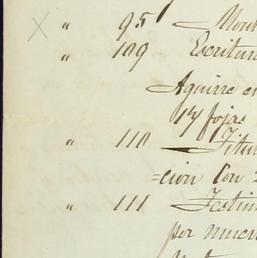 X " 95 Mon
" 109 Escritur
Aguirre e
17 fojas
" 110 Titu
=cion con
" 111 Testim
por muer